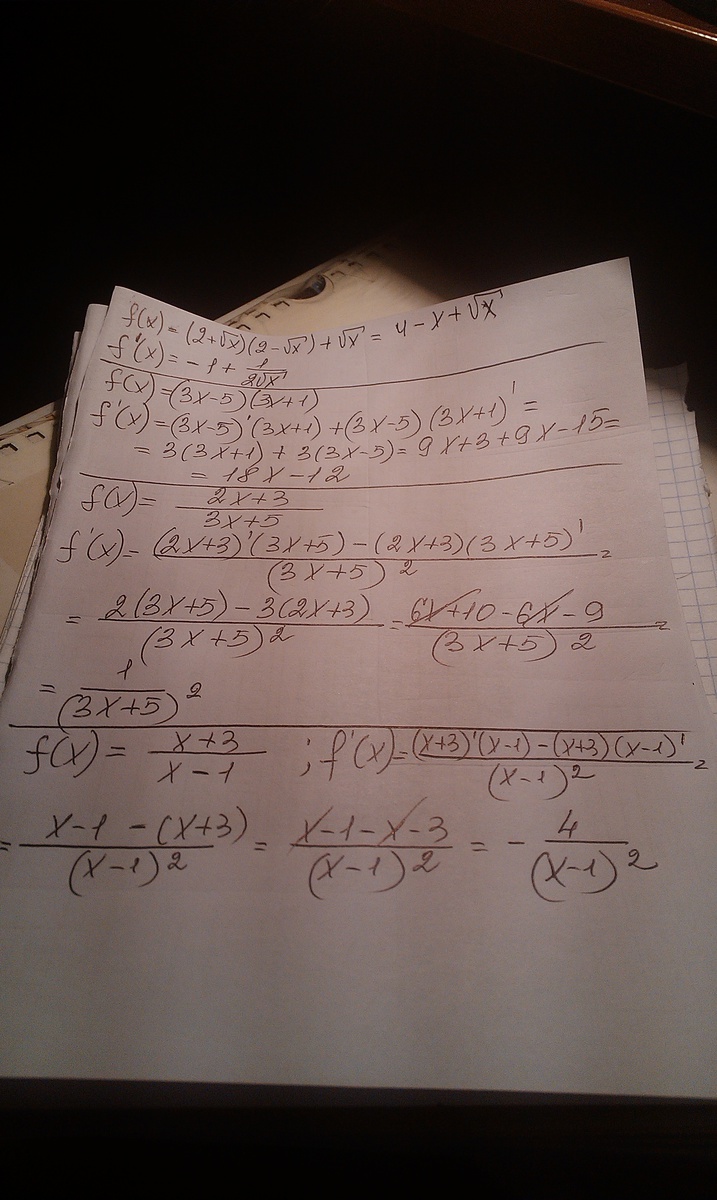 f(x) = (2+√x)(2-√x) + √x = 4 - x + √x
f'(x) = -1 + 1/(2√x)
f(x) = (3x-5)(3x+1)
f'(x) = (3x-5)'(3x+1) + (3x-5)(3x+1)' =
= 3(3x+1) + 3(3x-5) = 9x+3+9x-15 =
= 18x-12
f(x) = (2x+3)/(3x+5)
f'(x) = ((2x+3)'(3x+5) - (2x+3)(3x+5)')/(3x+5)² =
= (2(3x+5) - 3(2x+3))/(3x+5)² = (6x+10-6x-9)/(3x+5)² =
= 1/(3x+5)²
f(x) = (x+3)/(x-1) ; f'(x) = ((x+3)'(x-1) - (x+3)(x-1)')/(x-1)² =
= (x-1-(x+3))/(x-1)² = (x-1-x-3)/(x-1)² = -4/(x-1)²